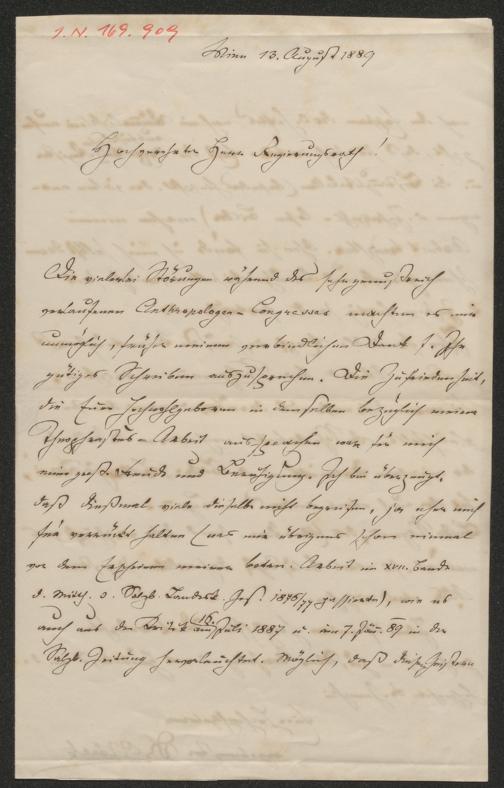 I. N. 169.909
Wien 13. August 1889
Hochverehrter Herr Regierungsrath!
Die vielerlei Störungen während des sehr genußreich
verlaufenen Anthropologen-Congresses machten es mir
unmöglich, früher meinen verbindlichen Dank f. Ihr
gütiges Schreiben auszusprechen. Die Zufriedenheit,
die Euer Hochwohlgeboren in demselben bezüglich meiner
Theophrastus-Arbeit aussprachen war für mich
eine große Freude und Beruhigung. Ich bin überzeugt,
daß dießmal viele dieselbe nicht begreifen, ja eher mich
für verrückt halten (was mir übrigens schon einmal
vor dem Erscheinen meiner botan. Arbeit im XVII. Bande
d. Mitth. d. Salzb. Landesk. Ges. 1876/77 passierte), wie es
auch aus der Kritik am 16. Juli 1887 u. im 7. Jän. 89 in der
Salzb. Zeitung hervorleuchtet. Möglich, daß diese Herren